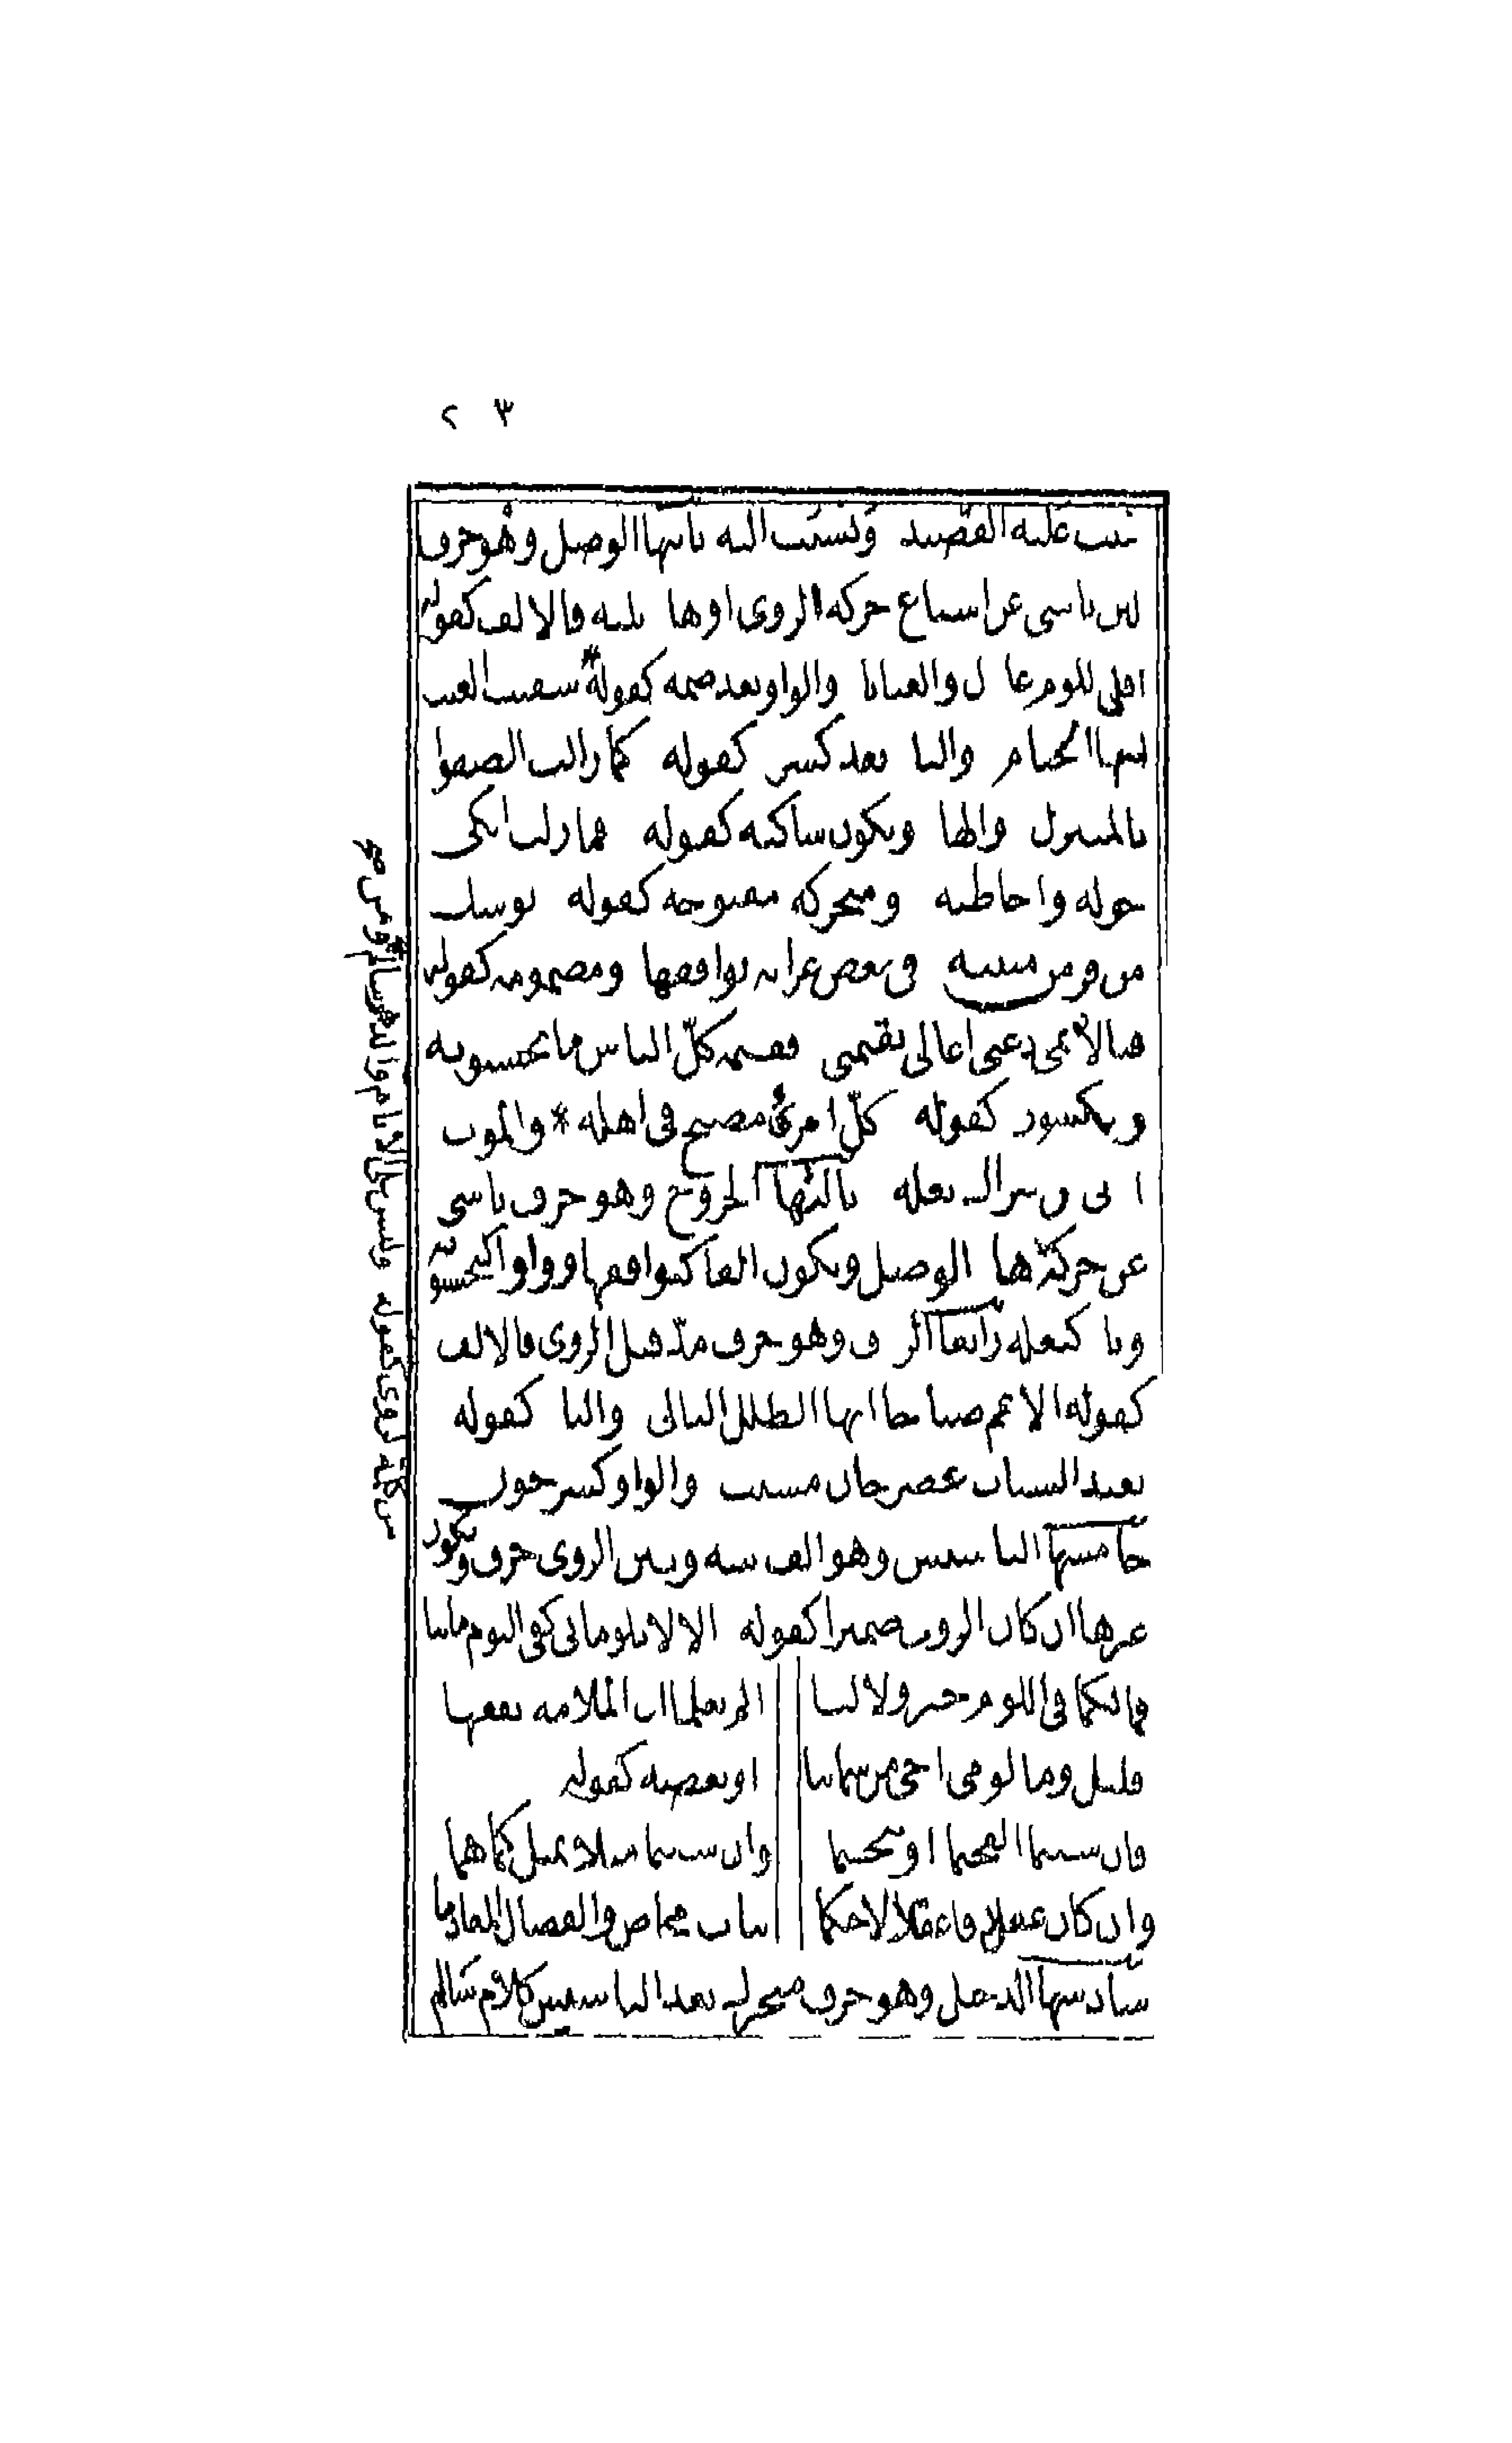 ٢ ٣
بنيت عليه القصيدة ونسبت اليه ثانيها الوصل وهو حرف
لين ناشئ عن اشباع حركة الروى او ها تليه فالالف كقوله
اقلي اللوم عاذل والعتابا والواو بعد ضمه كقوله * سقيت الغيث
ايتها الخيام واليا بعد كسر كقوله كما زلت الصفوا
بالمتنزل والها وتكون ساكنه كقوله فما زلت ابكى
حوله واخاطبه ومتحركه مفتوحه كقوله يوشك
من فر من منيته فى بعض غراته يوافقها ومضمومه كقوله
فيالائمى دعنى اغالى بقيمتى فقيمة كل الناس ما يحسنونه
ومكسوره كقوله كل امرئ مصبح فى اهله * والموت
ادنى من شراك نعله ثالثها الخروج وهو حرف ناشئ
عن حركة ها الوصل ويكون الفا كيوافقها وواوا كيحسنونه
ويا كنعله رابعها الردف وهو حرف مد قبل الروى فالالف
كقوله الا عم صباحا ايها الطلل البالى واليا كقوله
بعيد الشباب عصر حان مشيب والواو كسرحوب
خامسها التاسيس وهو الف بينه وبين الروى حرف ويكون
غيرها ان كان الروى ضميرا كقوله الا لا تلومانى كفى اللوم ما بيا
فما لكما فى اللوم خير ولا ليا الم تعلما ان الملامة نفعها
قليل وما لومى اخى من شماليا او بعضه كقوله
فان شيتما القحتما او نتجتما وان شيتما مثلا بمثل كما هما
وان كان عقلا فاعقلا لاخيكما بنات مخاض والفصال المقادما
سادسها الدخيل وهو حرف متحرك بعد التاسيس كلام سالم
من كلمة الروى كقوله وليس على الايام والدهر سالم * وعن صح